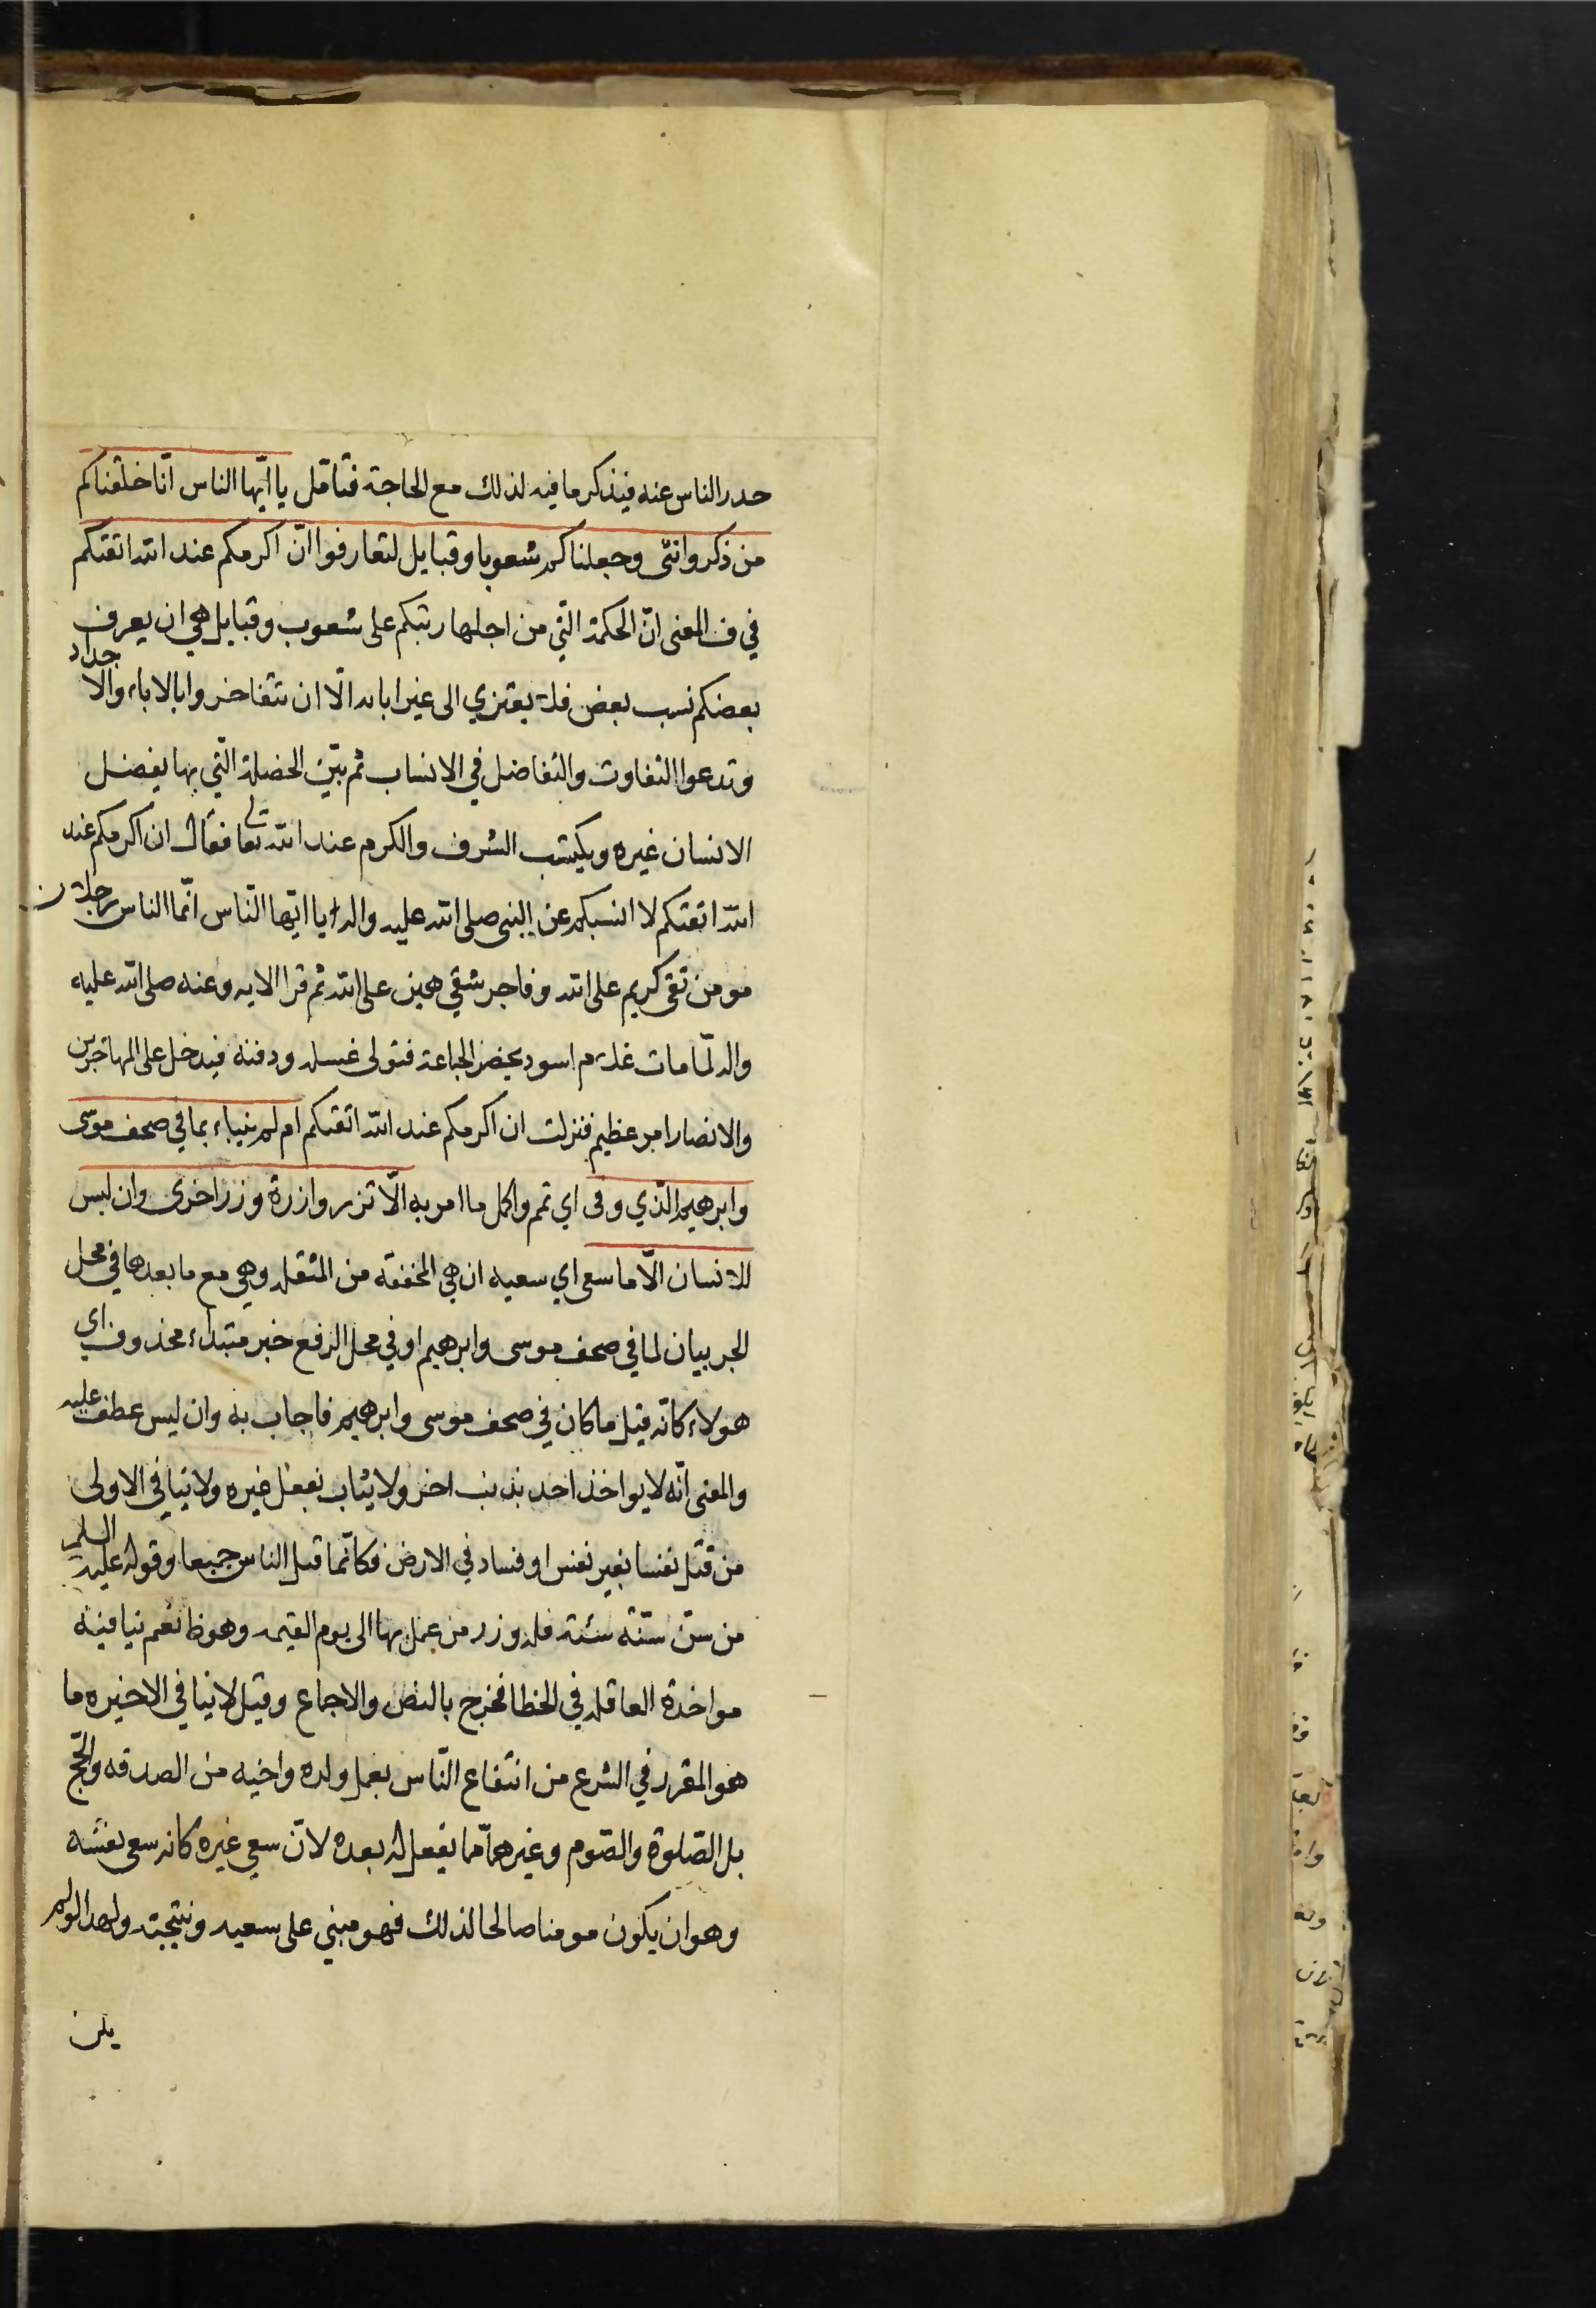 حدر الناس عنه فيذكر ما فيه لذلك مع الحاجة فتامّل يا ايّها الناس انّا خلقناكم
من ذكر وانثى وجعلناكم شعوبا وقبايل لتعارفوا انّ اكرمكم عند الله اتقيكم
في ف المعنى انّ الحكمة الّتي من اجلها رتبكم على شعوب وقبايل هي ان يعرف
بعضكم نسب بعض فلا يعتزي الى غير ابائه الّا ان تتفاخروا بالاباء والاجداد
وتدعوا التفاوت والتفاضل في الانساب ثم بيّن الخصلة الّتي بها يفضل
الانسان غيره ويكتسب الشرف والكرم عند الله تعالى فقال ان اكرمكم عند
الله اتقيكم لا انسبكم عن النبى صلى الله عليه واله يا ايّها النّاس انّما الناس رجلان
مومن تقى كريم على الله وفاجر شقي هين على الله ثم قرا الايه وعنه صلى الله عليه
واله لمّا مات غلام اسود يحضر الجماعة فتولى غسله ودفنه فيدخل على المهاجرين
والانصار امر عظيم فنزلت ان اكرمكم عند الله اتقيكم ام لم ينباء بما في صحف موسى
وابرهيم الّذي وفى اي تمم واكمل ما امر به الّا تزر وازرة وزر اخرى وان ليس
للانسان الّا ما سعى اي سعيه ان هي المخففة من المثقله وهي مع ما بعدها في محل
الجر بيان لما في صحف موسى وابرهيم او في محل الرفع خبر مبتداء محذوف اى
هولاء كانّه قيل ما كان في صحف موسى وابرهيم فاجاب به وان ليس عطف عليه
والمعنى انّه لا يواخذ احد بذنب اخر ولا يثاب بفعل غيره ولا ينافي الاولى
من قتل نفسا بغير نفس او فساد في الارض فكانّما قتل الناس جميعا وقوله عليه السلم
من سنّ سنّة سئة فله وزر من عمل بها الى يوم القيمه وهو ظ نعم ينافيه
مواخذة العاقله في الخطا فخرج بالنص والاجماع وقيل لا ينافي الاخيره ما
هو المقرر في الشرع من انتفاع النّاس بعمل ولده واخيه من الصدقه والحّج
بل الصّلوة والصّوم وغيرهما ممّا يفعل له بعده لانّ سعي غيره كانه سعى نفسه
وهو ان يكون مومنا صالحا لذلك فهو مبني على سعيه ونتيجته ولهذا لو لم
يكن